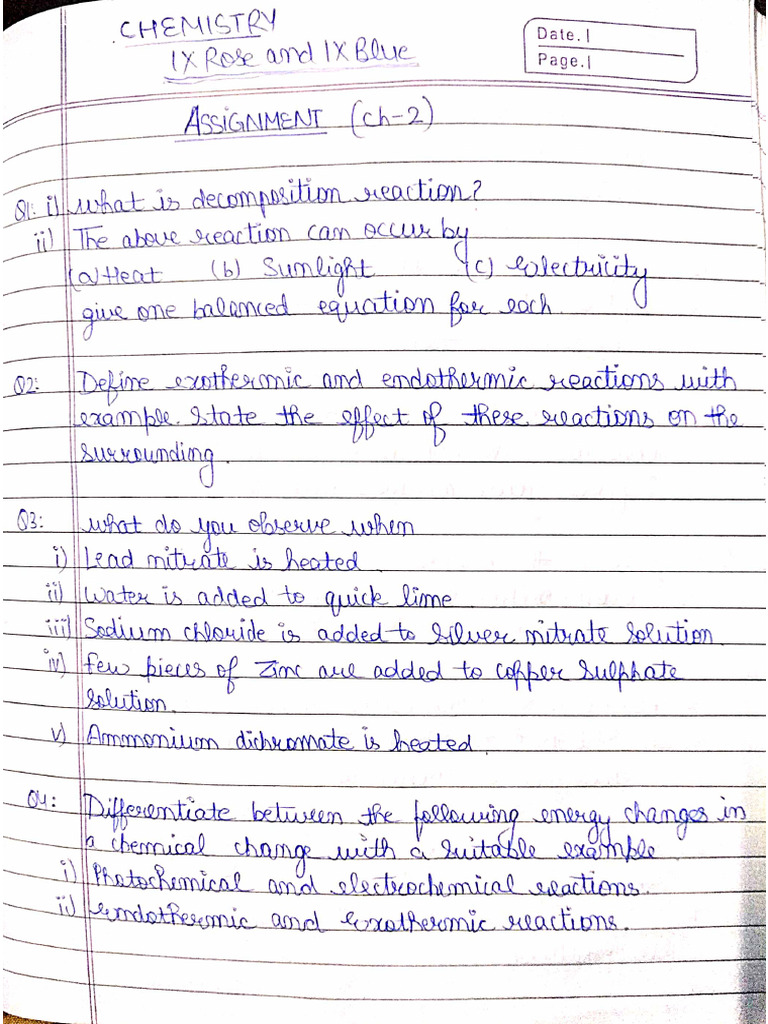 CHEMISTRY
IX Rose and IX Blue
Date.
Page.
ASSIGNMENT (Ch-2)
Q1: i) What is decomposition reaction?
ii) The above reaction can occur by
(a) Heat (b) Sunlight (c) Electricity
give one balanced equation for each.
Q2: Define exothermic and endothermic reactions with
example. State the effect of these reactions on the
surrounding.
Q3: What do you observe when
i) Lead nitrate is heated.
ii) Water is added to quick lime
iii) Sodium chloride is added to silver nitrate solution.
iv) Few pieces of zinc are added to copper sulphate
solution.
v) Ammonium dichromate is heated.
Q4: Differentiate between the following energy changes in
a chemical change with a suitable example
i) Photochemical and electrochemical reactions.
ii) Endothermic and Exothermic reactions.